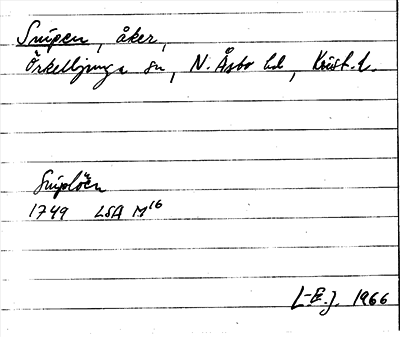 Snipen, åker,
Örkelljunga sn, N. Åsbo hd, Krist. l.
Sniplöcn
1749 LSA M16
1966